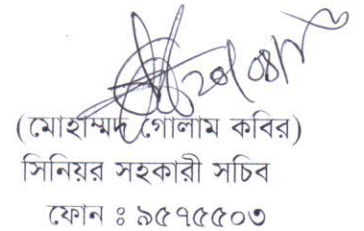 (মোহাম্মদ গোলাম কবির)
সিনিয়র সহকারী সচিব
ফোন ঃ ৯৫৭৫৫০৩